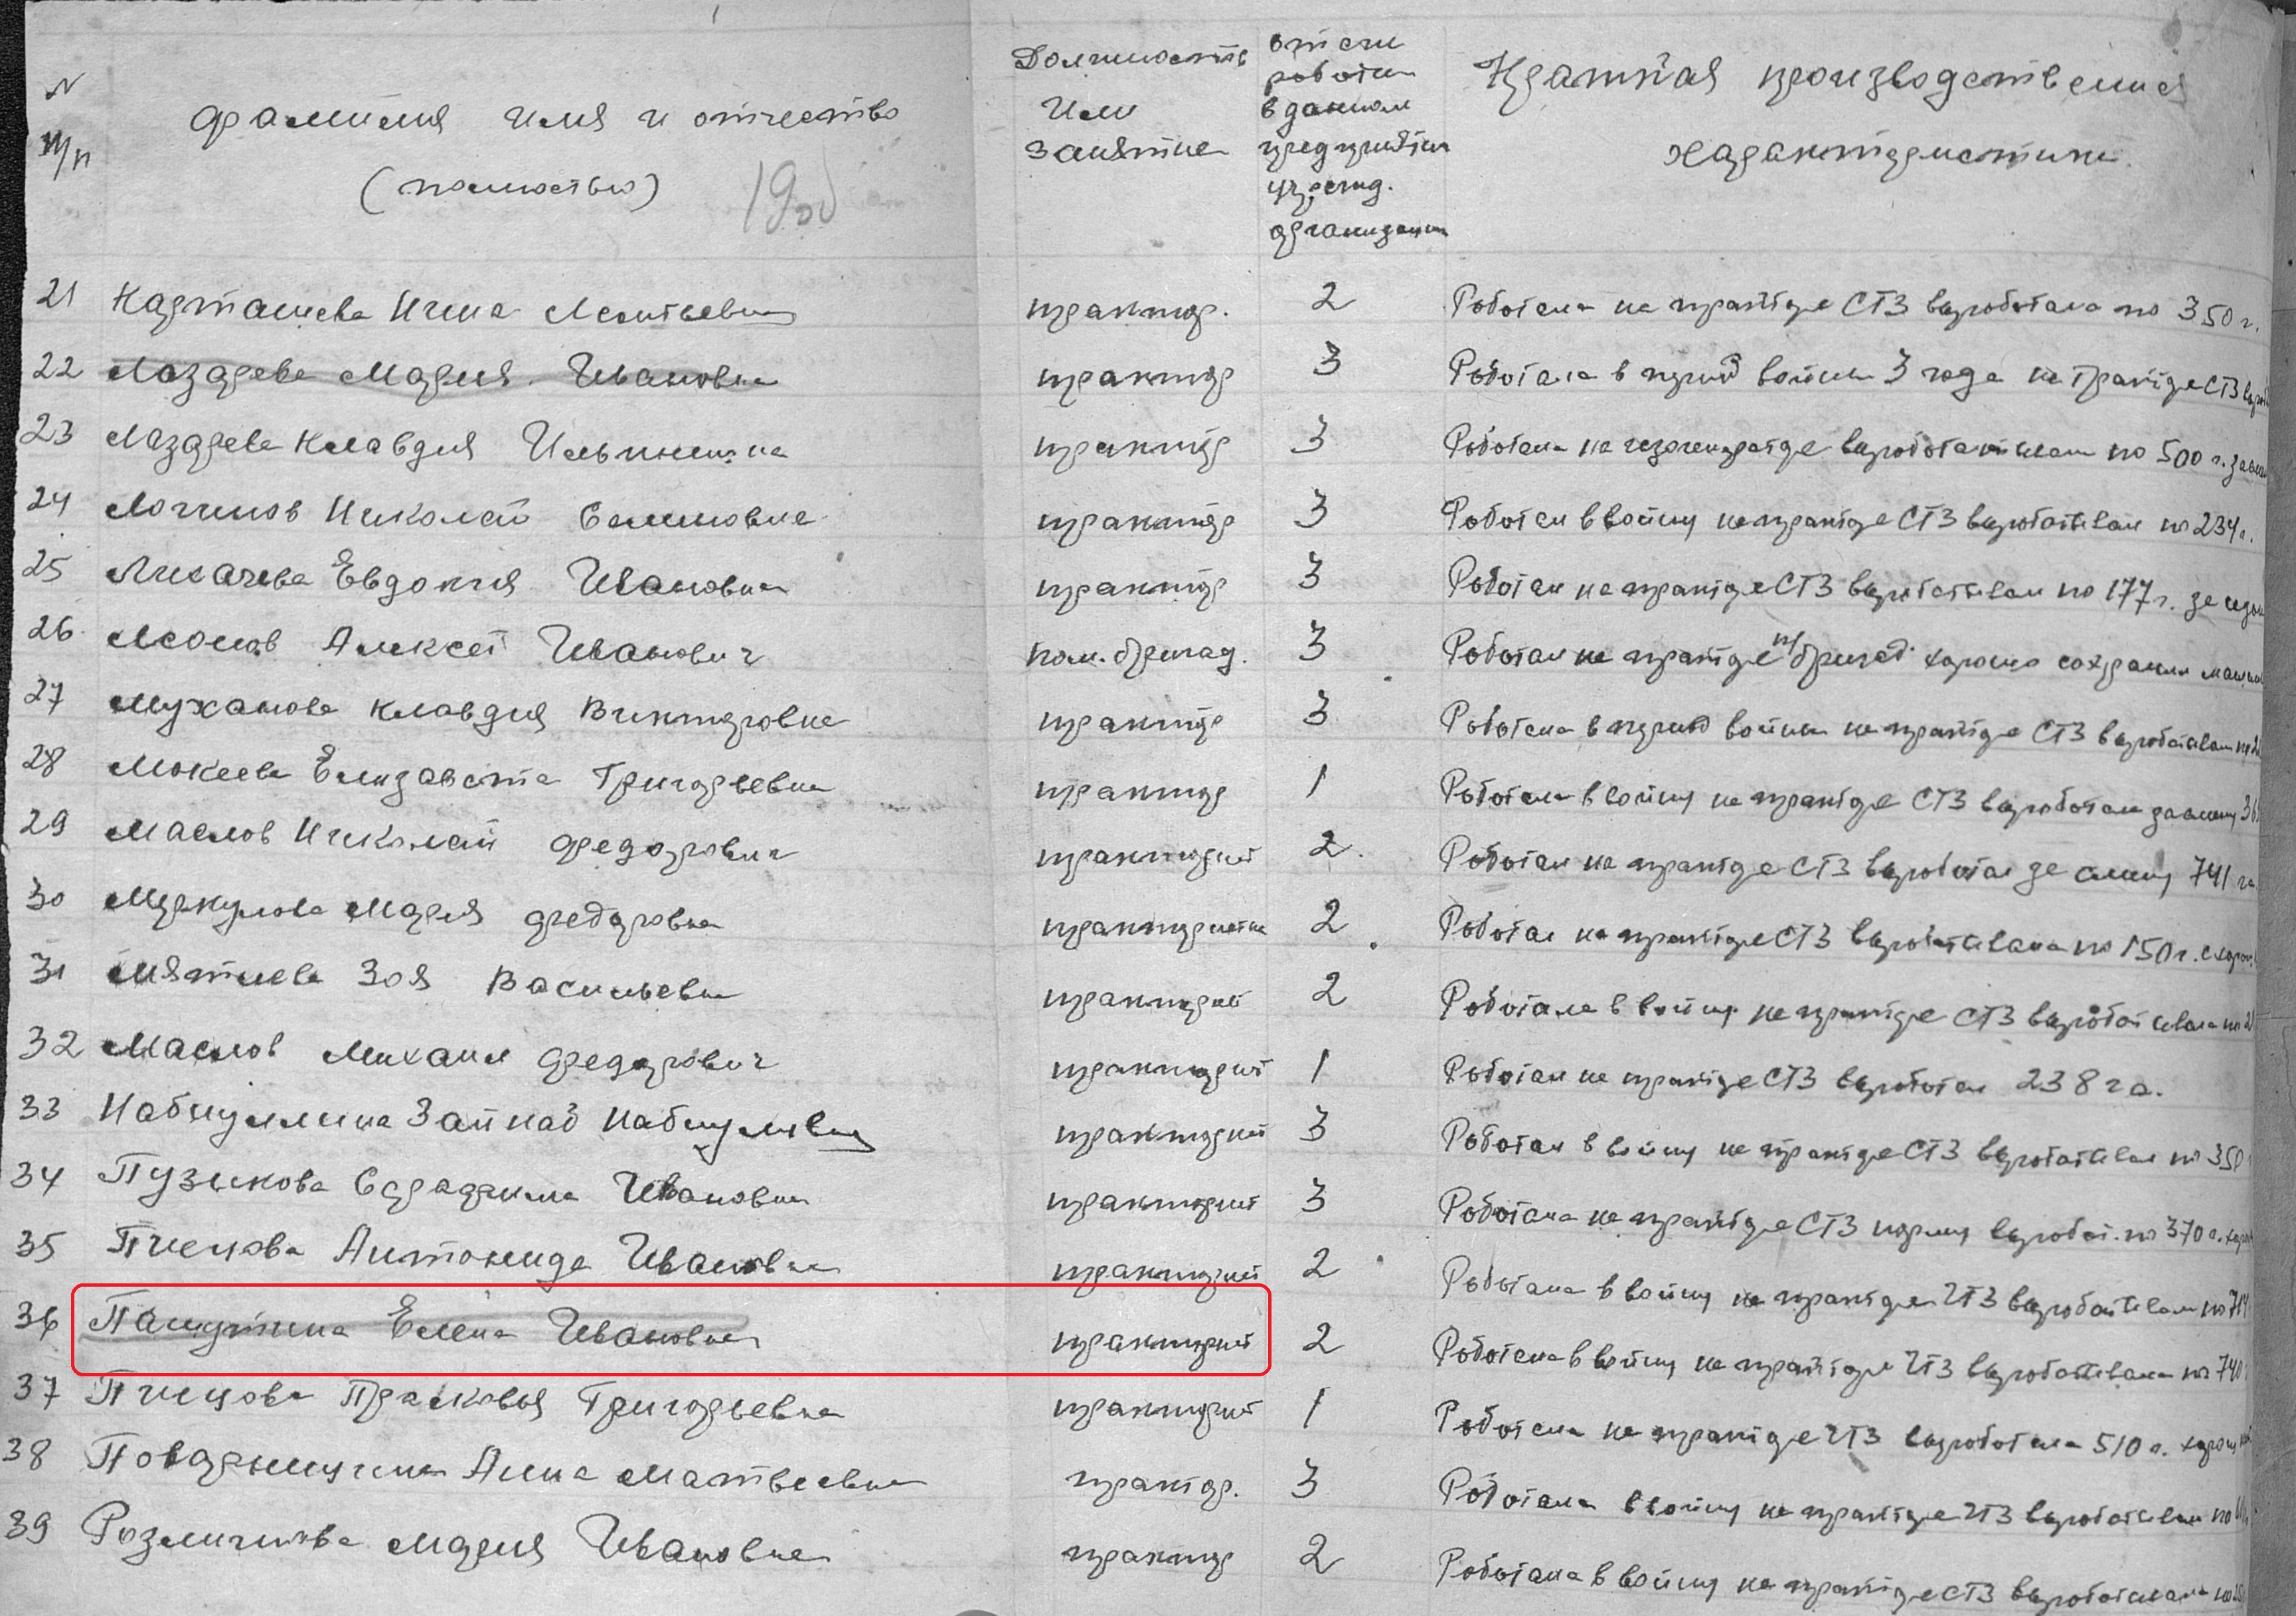 N п/п Фамилия Имя и отчество (полностью) 1930
Должность или занятие
стаж работы в данном предприятии учрежд. организации
Краткая производственная характеристика.
21 Карташева Нина Леонтьевна трактор. 2 Работала на тракторе СТЗ выработала по 350 г.
22 Лазарева Мария Ивановна трактор 3 Работала в период войны 3 года на тракторе СТЗ
23 Лазарева Клавдия Ильинична трактор 3 Работала на газогенераторе вырабатывала по 500 г.
24 Логинов Николай трактор 3 Работал в войну на тракторе СТЗ вырабатывал по 234 г.
25 Лихачева Евдокия Ивановна трактор 3 Работал на тракторе СТЗ вырабатывал по 177 г. за сезон
26 Алексей Иванович пом. бригад. 3 Работал на тракторе п/бригад. хорошо сохранял
27 Муханова Клавдия Викторовна трактор 3 Работала в период войны на тракторе СТЗ вырабатывала
28 Мокеева Елизавета Григорьевна трактор 1 Работала в войну на тракторе СТЗ выработала
29 Маслов Николай Федорович тракторист 2 Работал на тракторе СТЗ выработал за смену 741 га
30 Меркулова Мария Федоровна трактористка 2 Работал на тракторе СТЗ вырабатывала по 150 г.
31 Мятлева Зоя Васильевна тракторист 2 Работала в войну на тракторе СТЗ вырабатывала по
32 Маслов Михаил Федорович тракторист 1 Работал на тракторе СТЗ выработал 238 га.
33 Набиуллина Зайнаб тракторист 3 Работал в войну на тракторе СТЗ вырабатывал по 350
34 Пузикова Ивановна тракторист 3 Работала на тракторе СТЗ норму выработ. по 370 г.
35 Пчелова Антонида Ивановна тракторист 2 Работала в войну на тракторе ЧТЗ вырабатывала по
36 Панутина Елена Ивановна тракторист 2 Работала в войну на тракторе ЧТЗ вырабатывала по 740
37 Прасковья Григорьевна тракторист 1 Работала на тракторе ЧТЗ выработала 510 г.
38 Анна Матвеевна трактор. 3 Работала в войну на тракторе ЧТЗ вырабатывала по
39 Мария Ивановна трактор 2 Работала в войну на тракторе СТЗ вырабатывала по